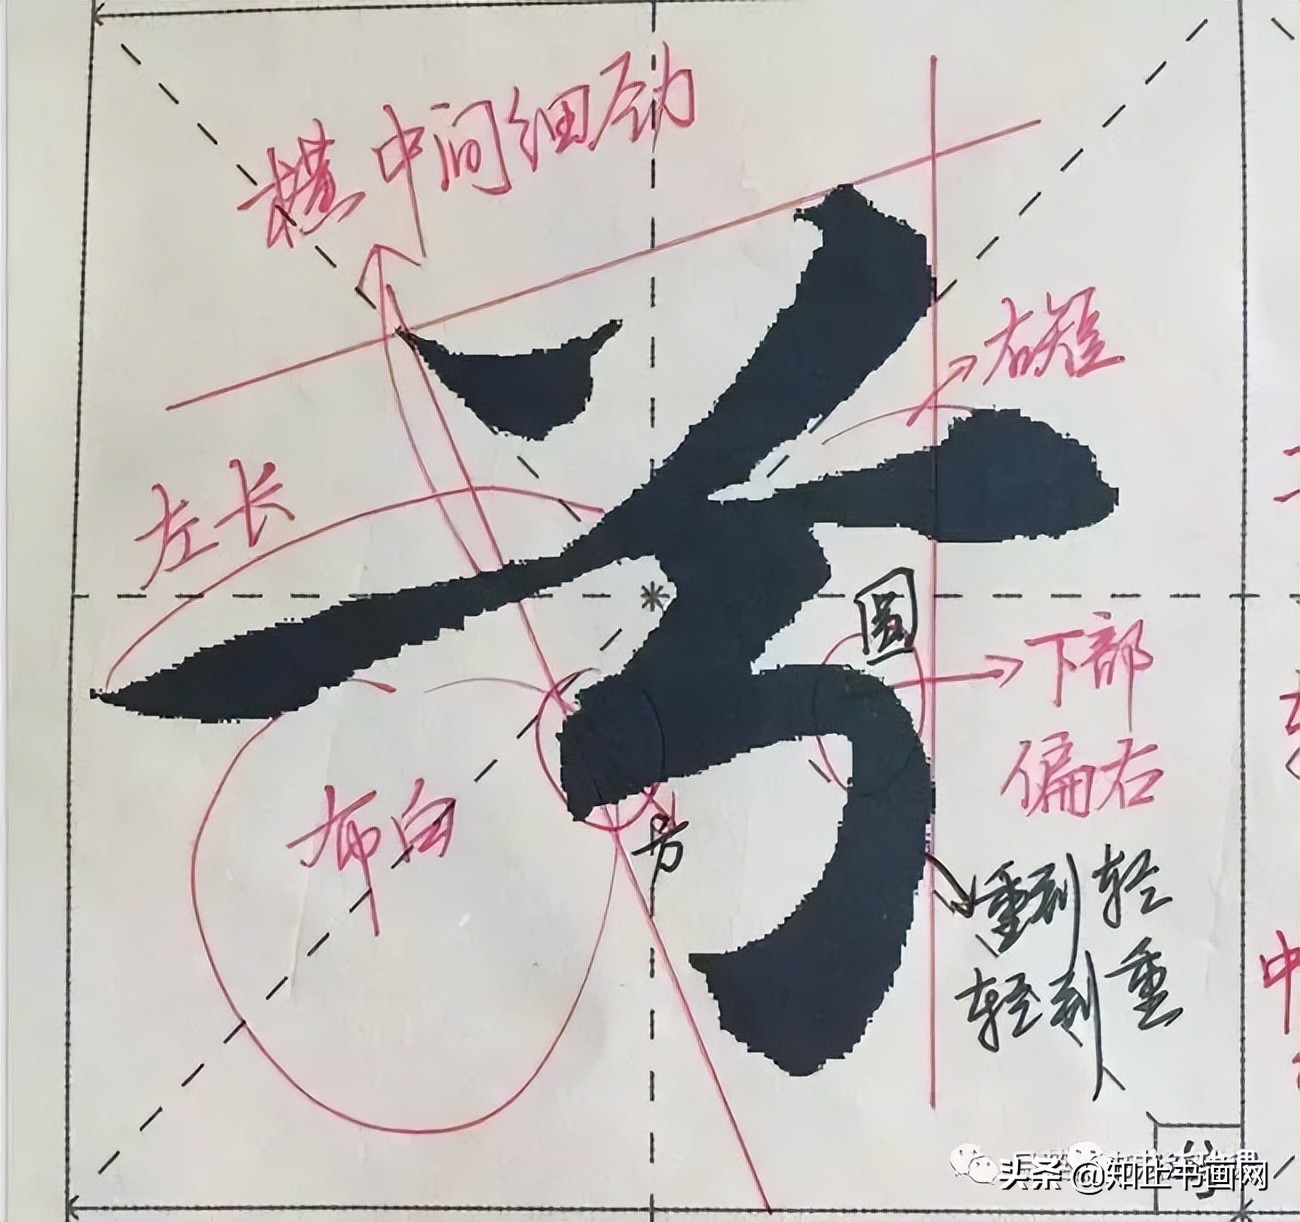 横中间细劲
右短
左长
兮
圆
下部
偏右
布白
方
重到轻
轻到重
中
头条 @知止书画网